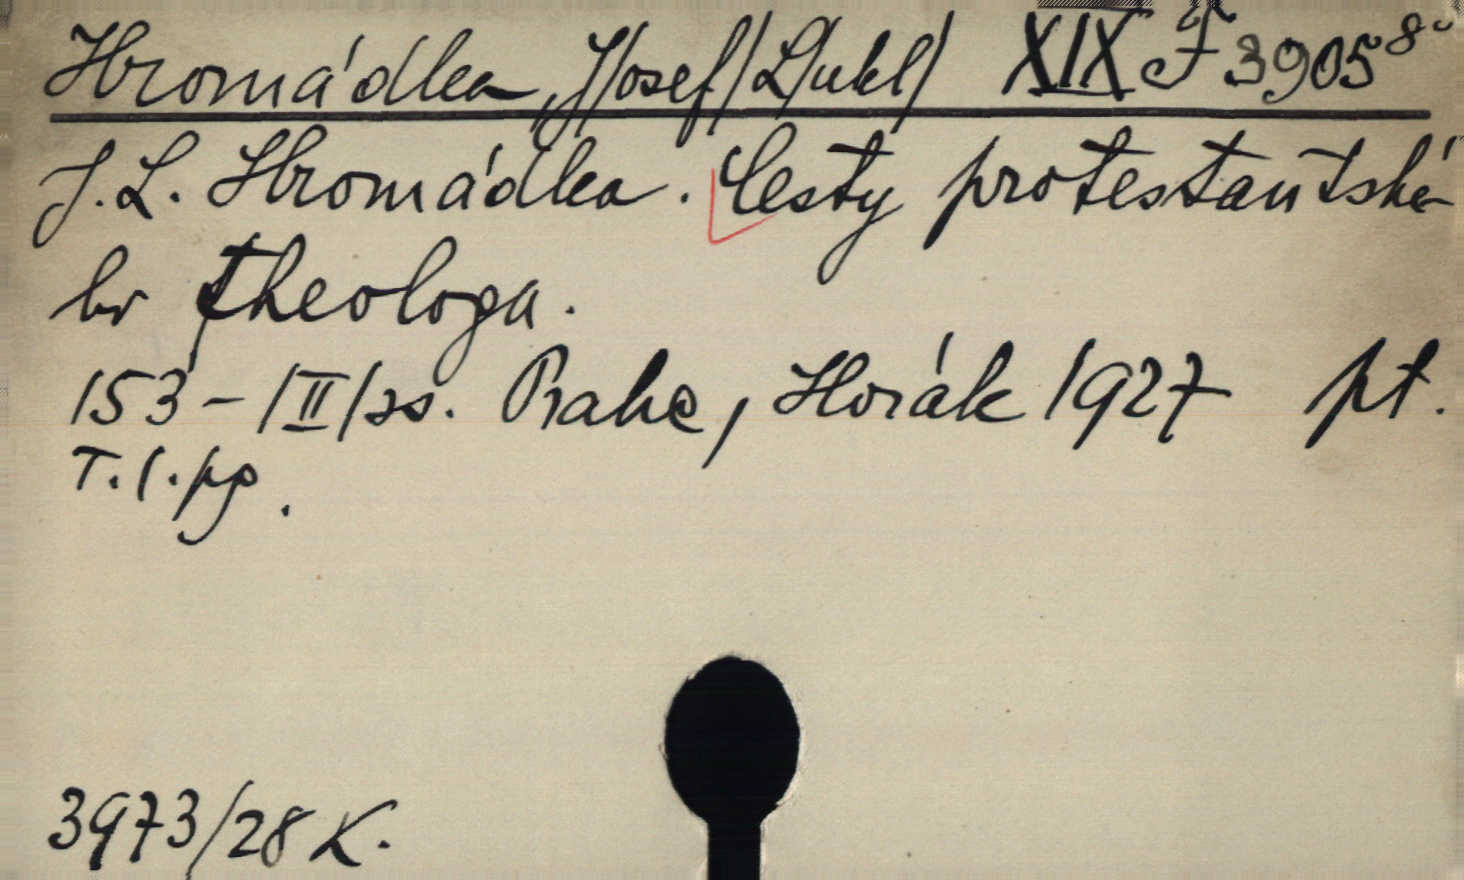 Hromádka, J/osef/ L/ukl/ XIX F 3905 8°
J. L. Hromádka. Cesty protestantské-
ho theologa.
153 - /II/ ss. Praha, Horák 1927 pt.
T. l. pg.
3973/28 K.